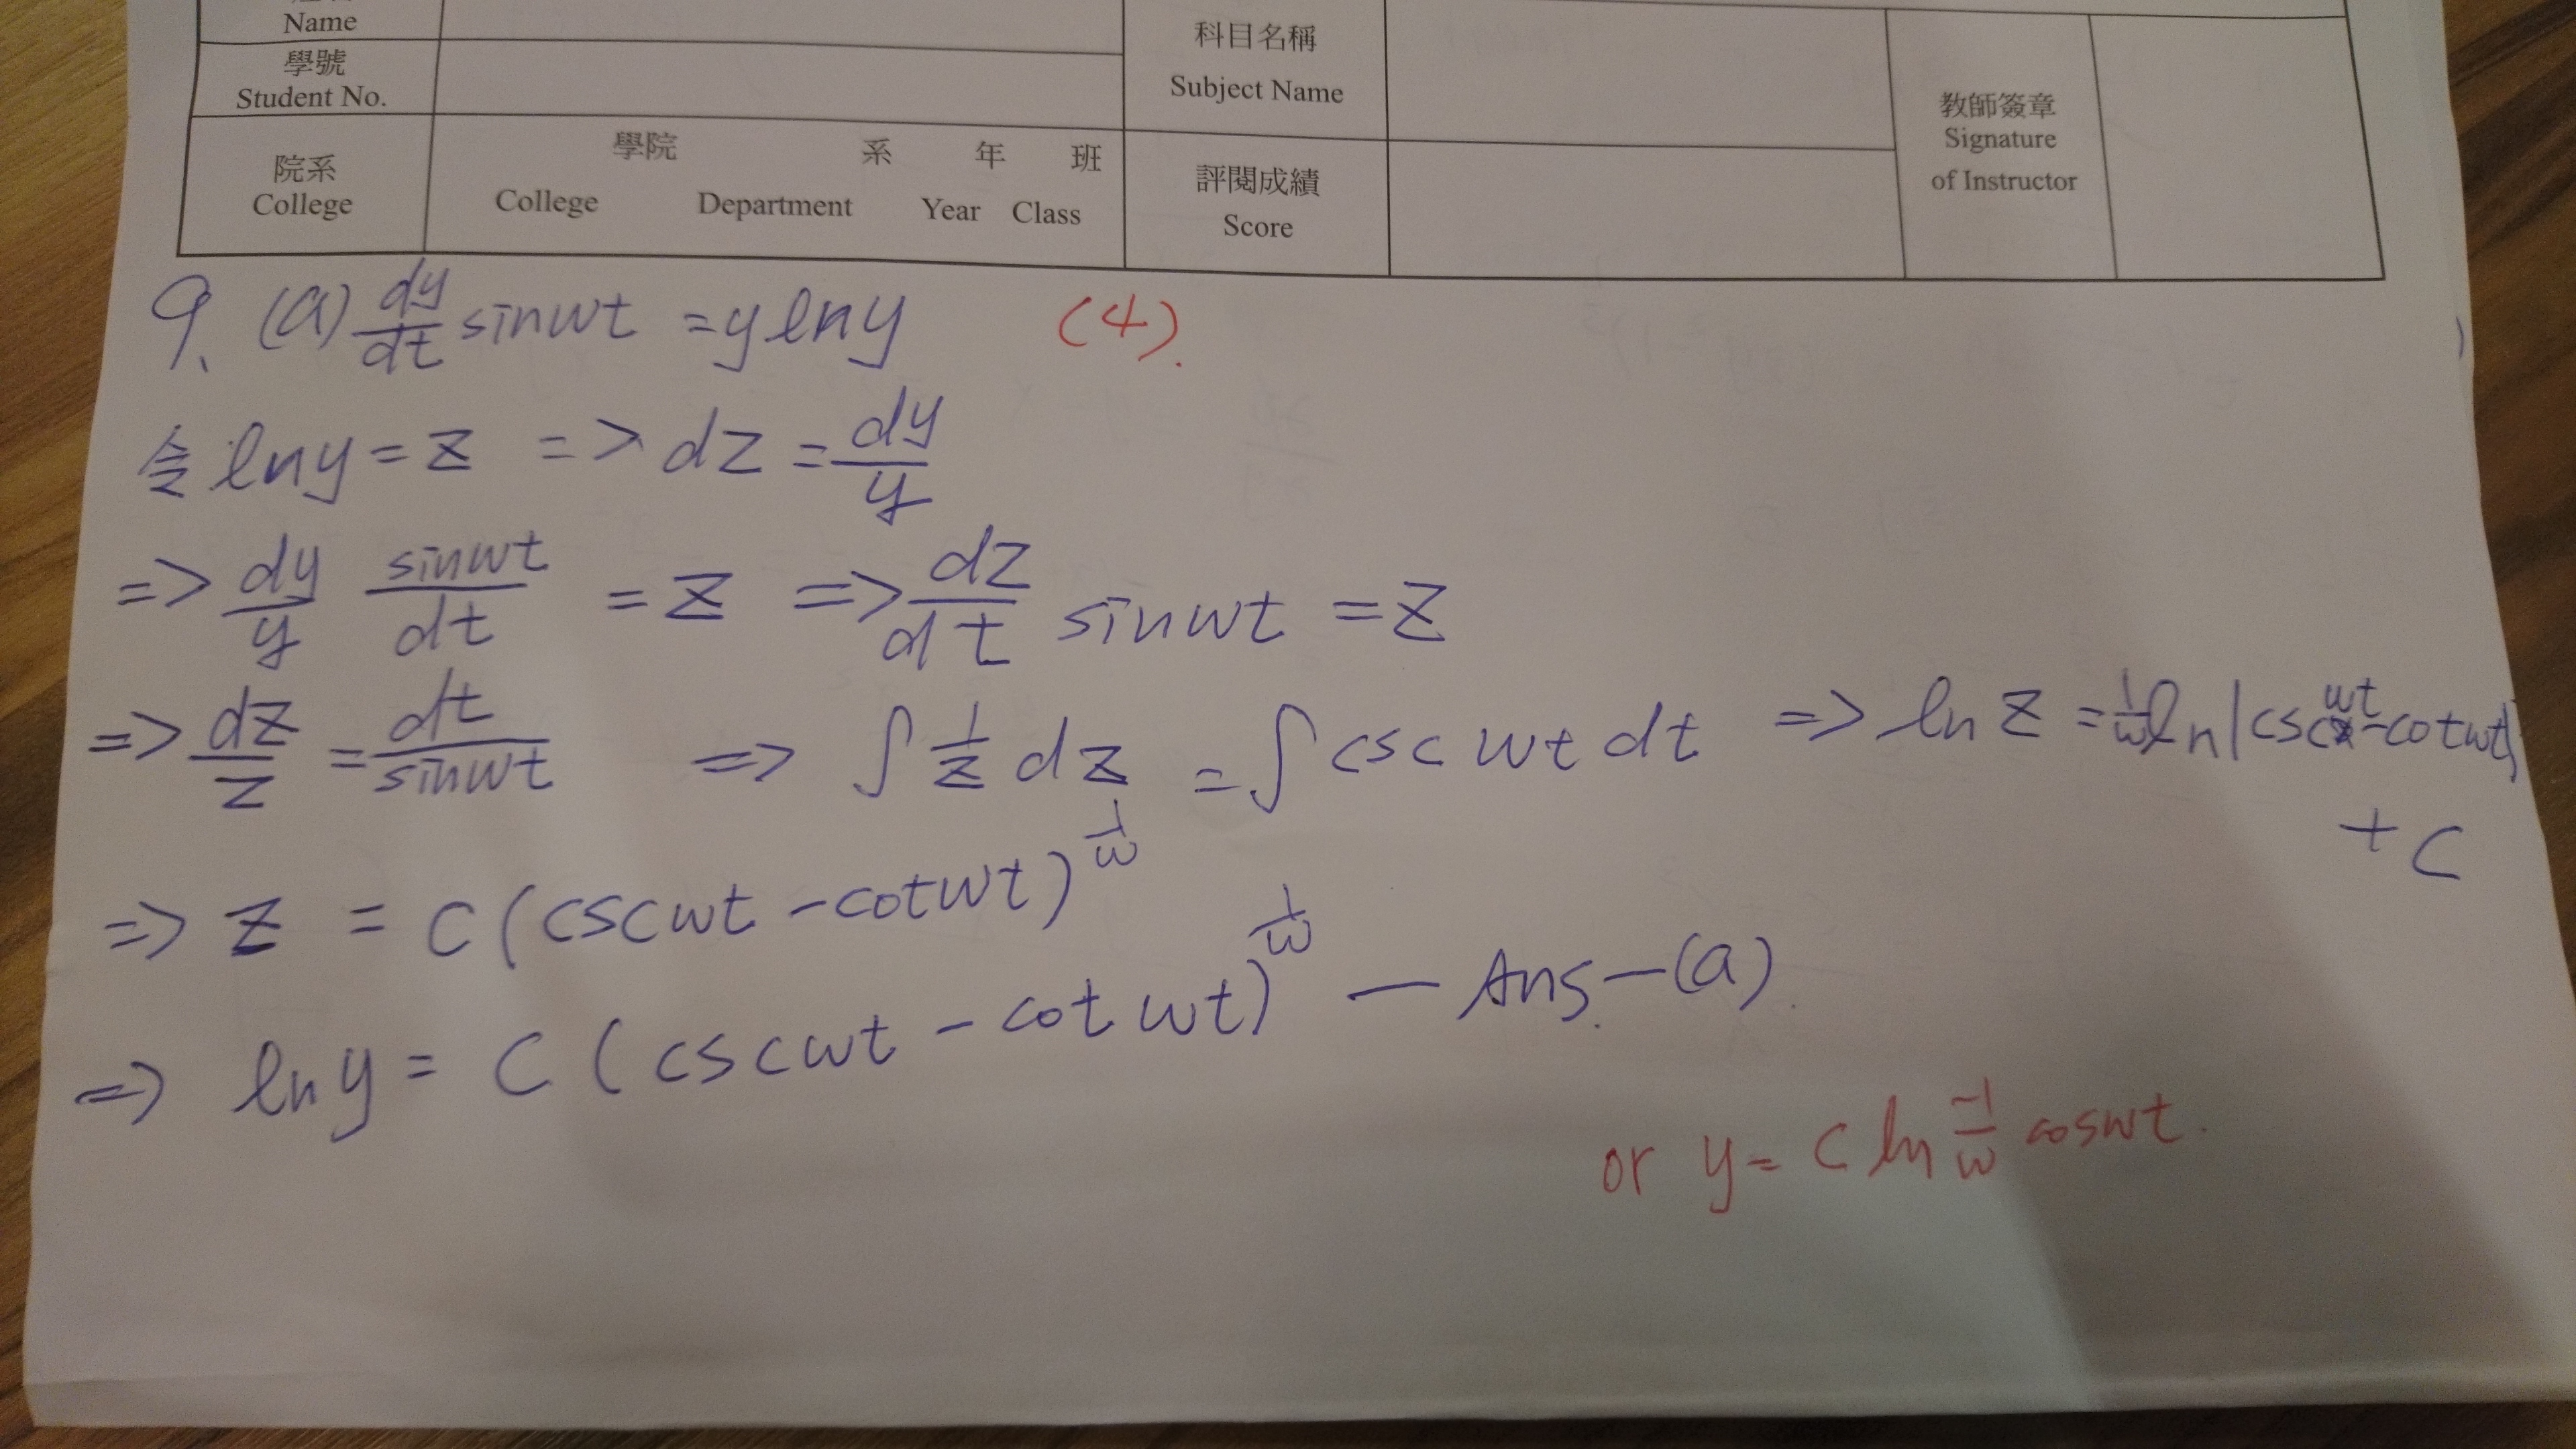 Name
學號
Student No.
科目名稱
Subject Name
教師簽章
Signature
of Instructor
院系
College
學院 系 年 班
College Department Year Class
評閱成績
Score
9. (a) dy/dt sinwt = y ln y (4).
令 ln y = z => dz = dy/y
=> dy/y sinwt/dt = z => dz/dt sinwt = z
=> dz/z = dt/sinwt => ∫ 1/z dz = ∫ csc wt dt => ln z = 1/w ln |csc wt - cot wt|
+ C
=> z = C (csc wt - cot wt)^1/w
=> ln y = C (csc wt - cot wt)^1/w — Ans. — (a).
or y = C ln -1/w cos wt.